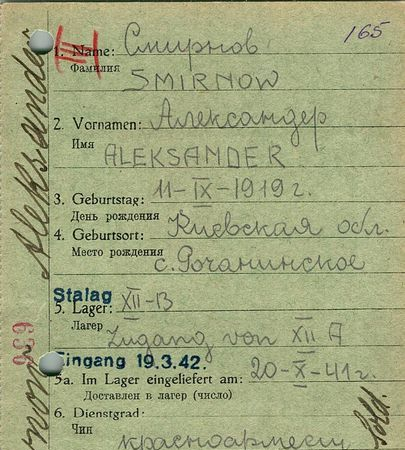 165
III
1. Name: Смирнов
Фамилия
SMIRNOW
2. Vornamen: Александер
Имя
ALEKSANDER
3. Geburtstag: 11-IX-1919 г.
День рождения
4. Geburtsort: Киевская обл.
Место рождения
с. Рочанинское
Stalag
5. Lager: XII-B
Лагер
Zugang von XII A
Eingang 19.3.42.
5a. Im Lager eingeliefert am: 20-X-41 г.
Доставлен в лагер (число)
6. Dienstgrad: Sold.
Чин
красноармеец
Aleksander
636